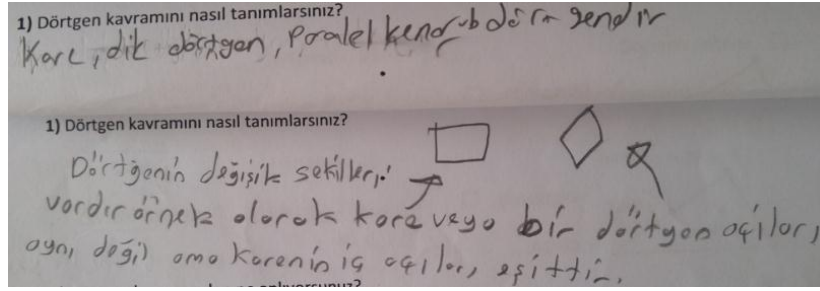 1) Dörtgen kavramını nasıl tanımlarsınız?
Kare, dik dörtgen, Paralel kenar dörtgendir
1) Dörtgen kavramını nasıl tanımlarsınız?
Dörtgenin değişik sekilleri
vardır örnek olarak kare veya bir dörtgen açıları
aynı değil ama karenin iç açıları eşittir.